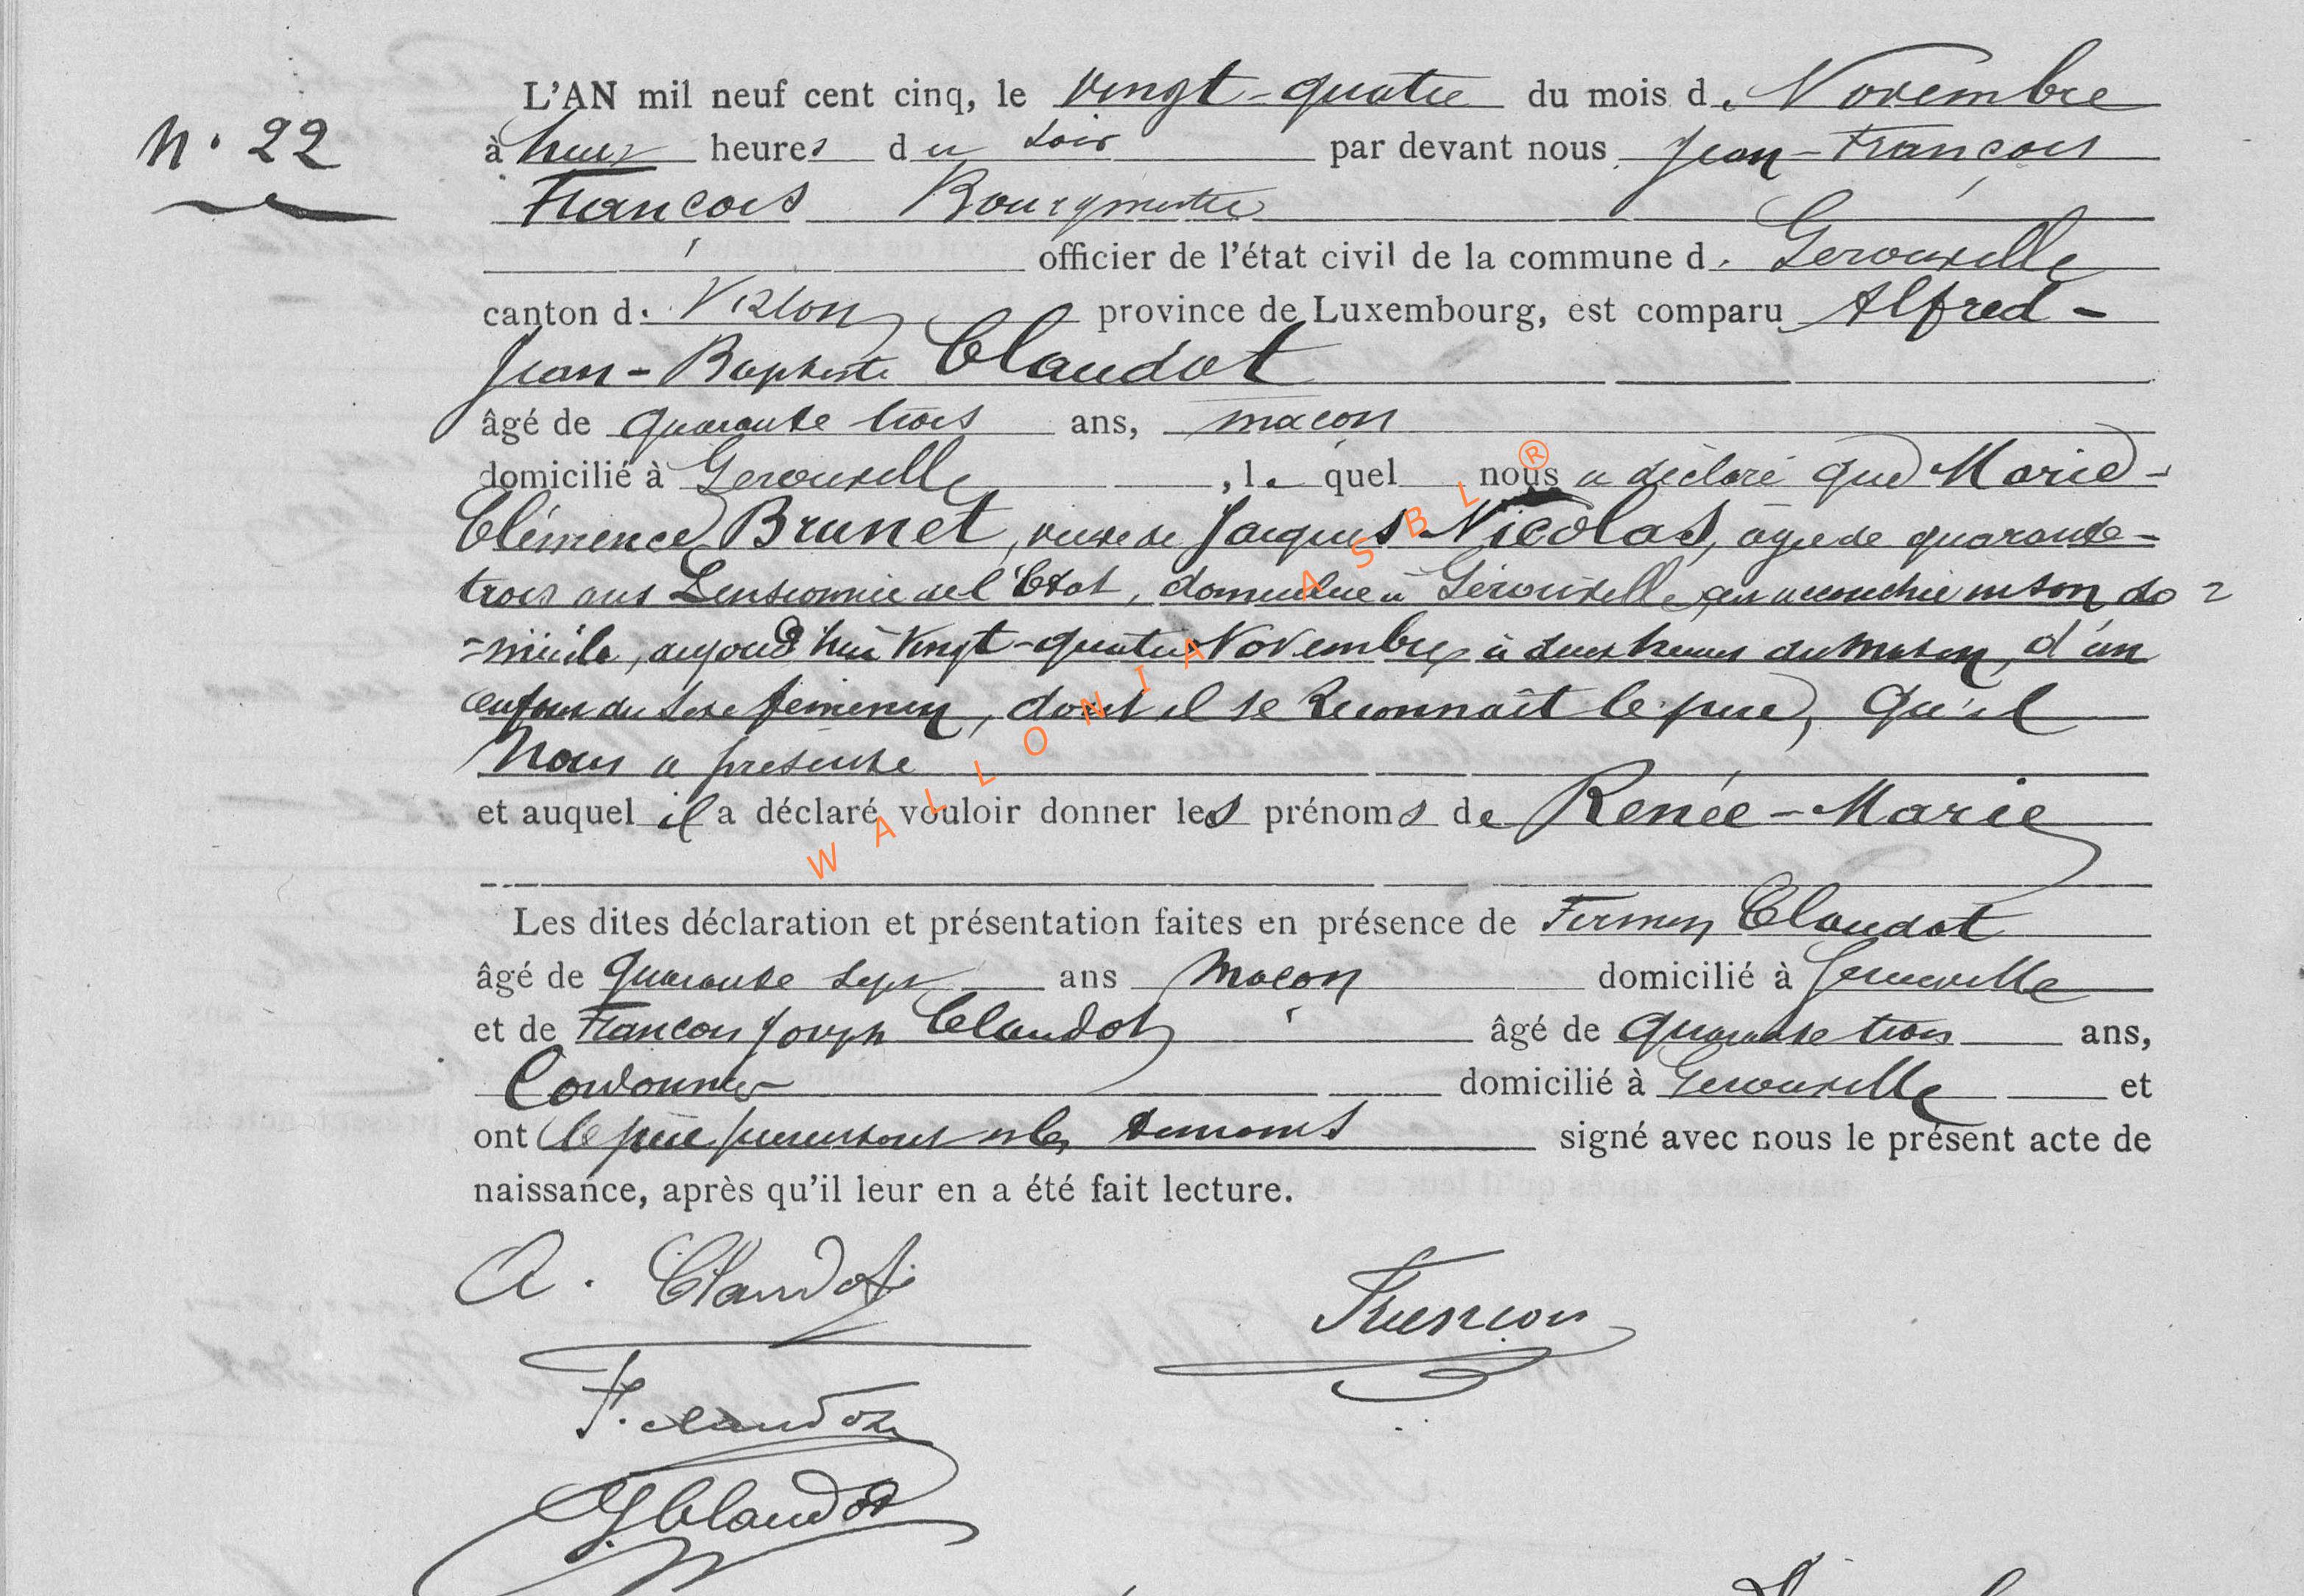 L'AN mil neuf cent cinq, le vingt-quatre du mois de Novembre
N. 22
à huit heures du soir par devant nous Jean-François
François Bourgmestre
officier de l'état civil de la commune d. Gerouville
canton d. Virton province de Luxembourg, est comparu Alfred-
Jean-Baptiste Claudot
âgé de quarante trois ans, macon
domicilié à Gerouville, le quel nous a déclaré que Marie-
Clémence Brunet, veuve de Jacques Nicolas, agée de quarante-
trois ans Pensionnée de l'Etat, domiciliée à Gérouville, est accouchée en son do=
=micile, aujourd'hui vingt-quatre Novembre à deux heures du matin, d'un
enfant du sexe féminin, dont il se reconnaît le père, qu'il
Nous a présenté
et auquel il a déclaré vouloir donner les prénoms de Renée-Marie
Les dites déclaration et présentation faites en présence de Firmin Claudot
âgé de quarante sept ans Macon domicilié à Gerouville
et de François Joseph Claudot âgé de quarante trois ans,
Cordonnier domicilié à Gerouville et
ont le père présentant et les témoins signé avec nous le présent acte de
naissance, après qu'il leur en a été fait lecture.
A. Claudot
François
F. Claudot
J Claudot
WALLONIA ASBL ®